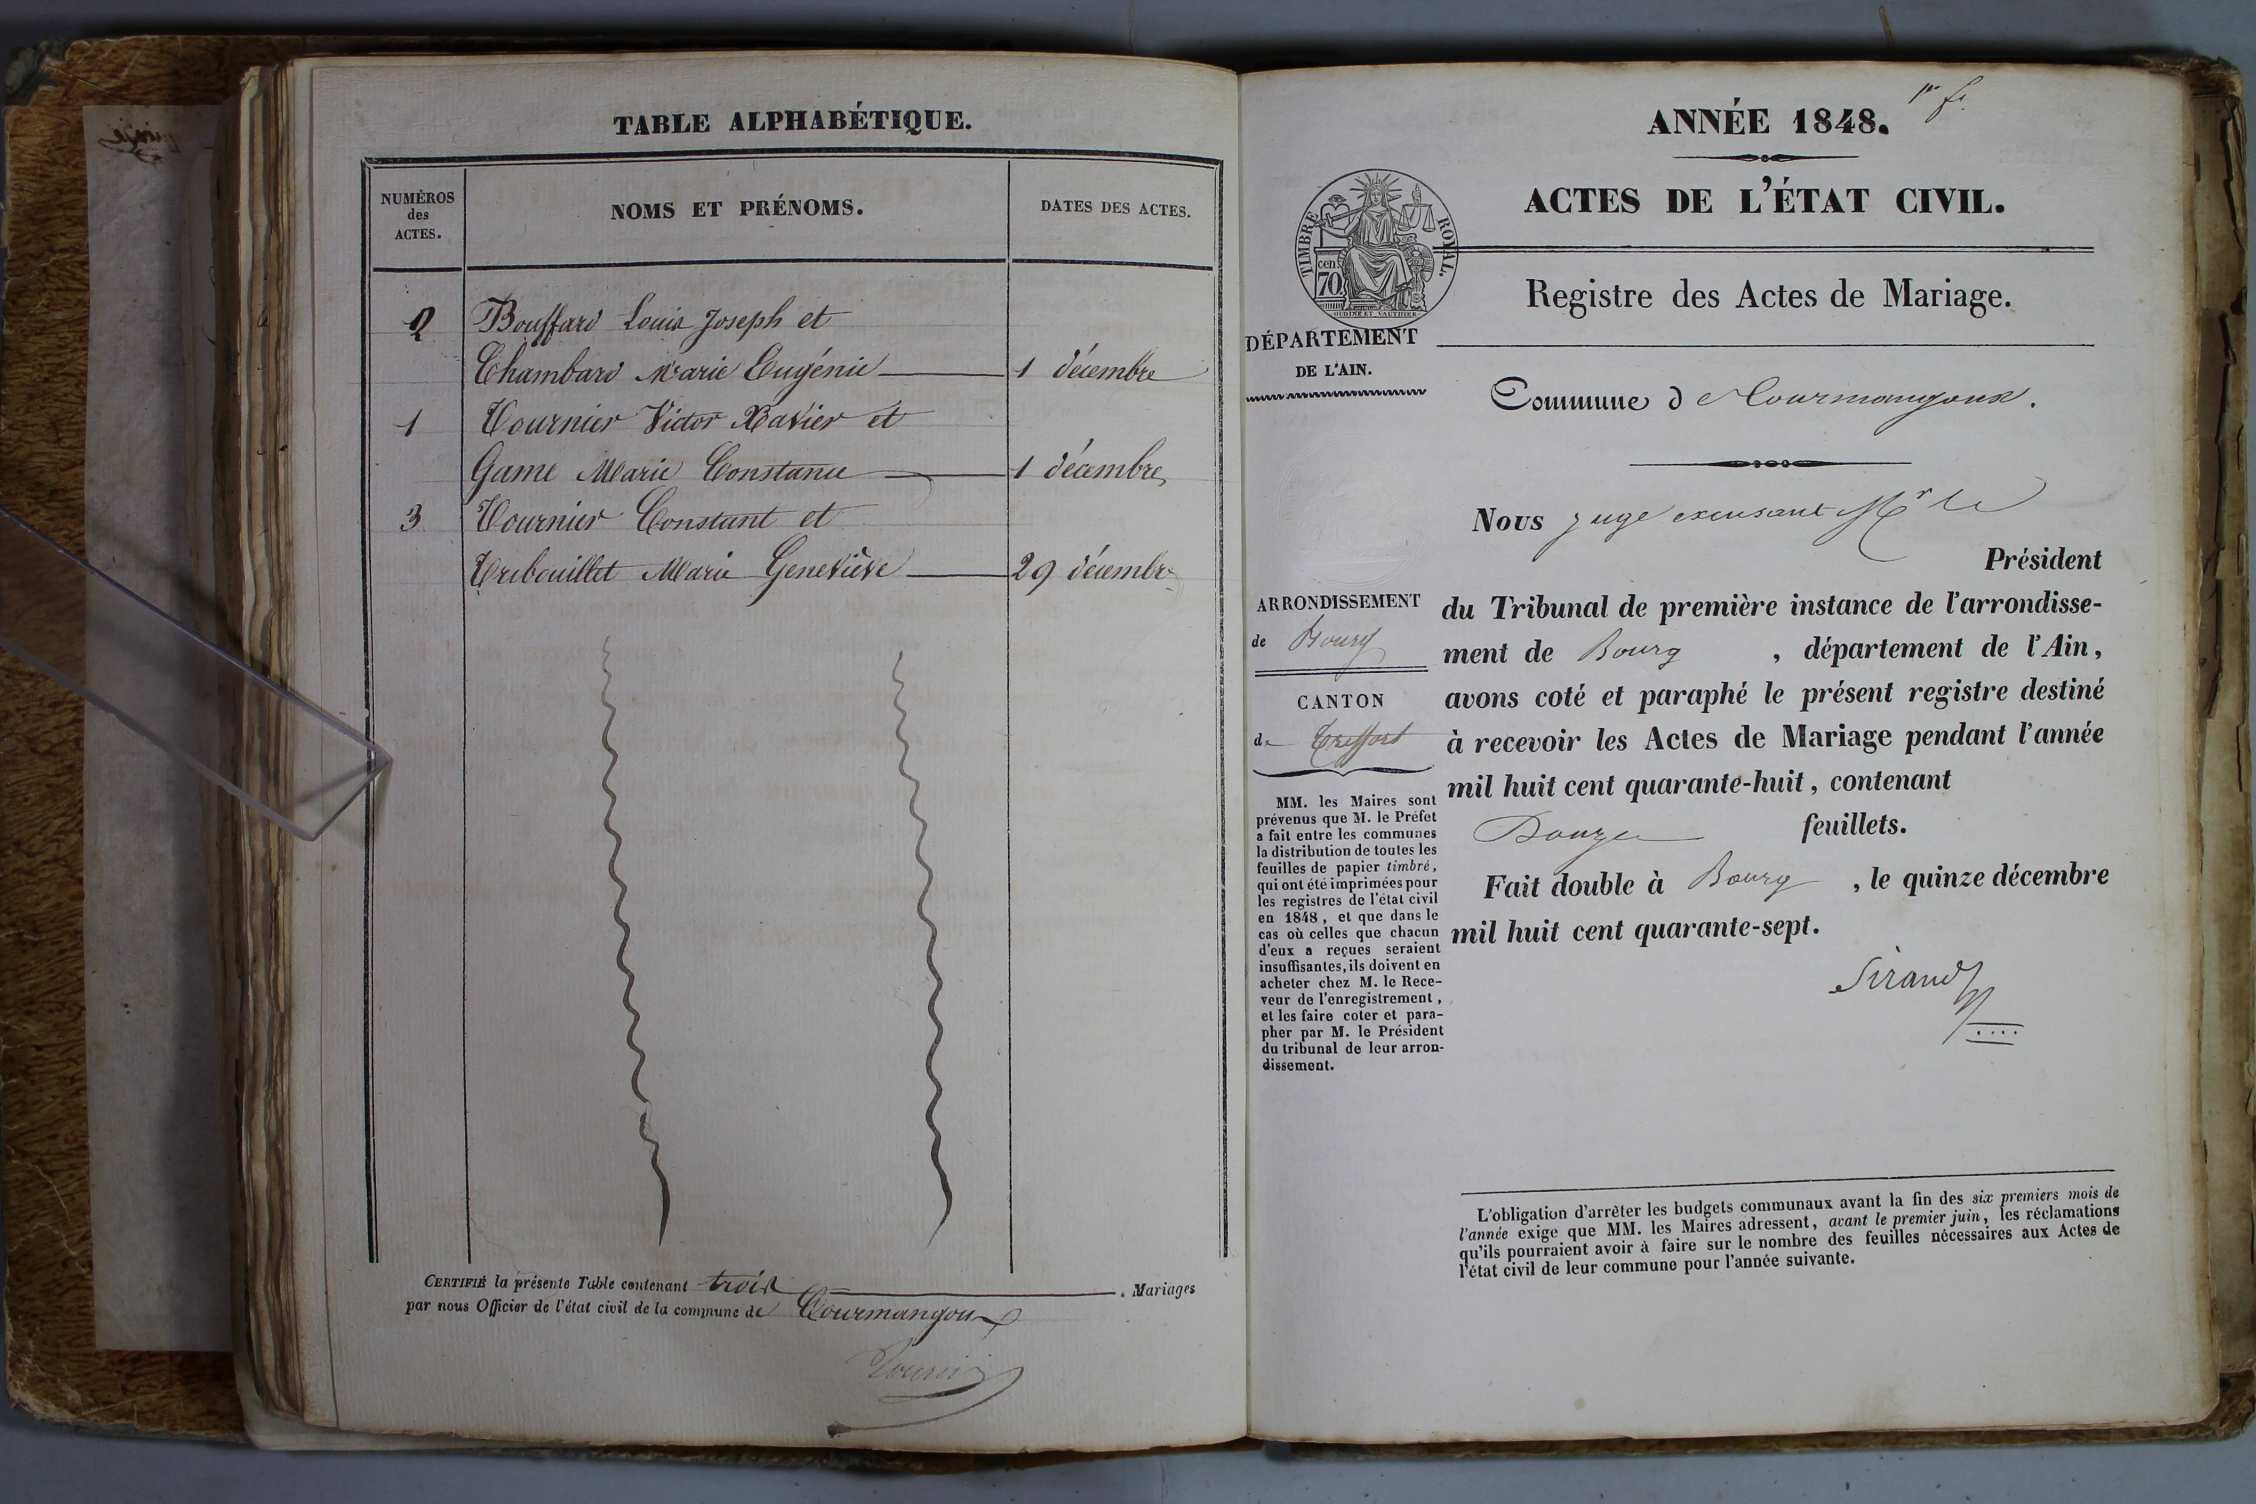 TABLE ALPHABÉTIQUE.
NUMÉROS
des
ACTES.
NOMS ET PRÉNOMS.
DATES DES ACTES.
2 Bouffard Louis Joseph et
Chambard Marie Eugénie 1 décembre
1 Tournier Victor Xavier et
Game Marie Constance 1 décembre
3 Tournier Constant et
Tribouillet Marie Geneviève 29 décembre
CERTIFIÉ la présente Table contenant trois . Mariages
par nous Officier de l'état civil de la commune de Courmangoux
1er f.
ANNÉE 1848.
ACTES DE L'ÉTAT CIVIL.
TIMBRE ROYAL.
cen.
70.
Registre des Actes de Mariage.
DÉPARTEMENT
DE L'AIN.
Commune d e Courmangoux.
Nous juge Mr le
Président
du Tribunal de première instance de l'arrondisse-
ment de Bourg , département de l'Ain,
avons coté et paraphé le présent registre destiné
à recevoir les Actes de Mariage pendant l'année
mil huit cent quarante-huit, contenant
Douze feuillets.
Fait double à Bourg , le quinze décembre
mil huit cent quarante-sept.
Sirand
ARRONDISSEMENT
de Bourg
CANTON
de Treffort
MM. les Maires sont
prévenus que M. le Préfet
a fait entre les communes
la distribution de toutes les
feuilles de papier timbré,
qui ont été imprimées pour
les registres de l'état civil
en 1848, et que dans le
cas où celles que chacun
d'eux a reçues seraient
insuffisantes, ils doivent en
acheter chez M. le Rece-
veur de l'enregistrement,
et les faire coter et para-
pher par M. le Président
du tribunal de leur arron-
dissement.
L'obligation d'arrêter les budgets communaux avant la fin des six premiers mois de
l'année exige que MM. les Maires adressent, avant le premier juin, les réclamations
qu'ils pourraient avoir à faire sur le nombre des feuilles nécessaires aux Actes de
l'état civil de leur commune pour l'année suivante.